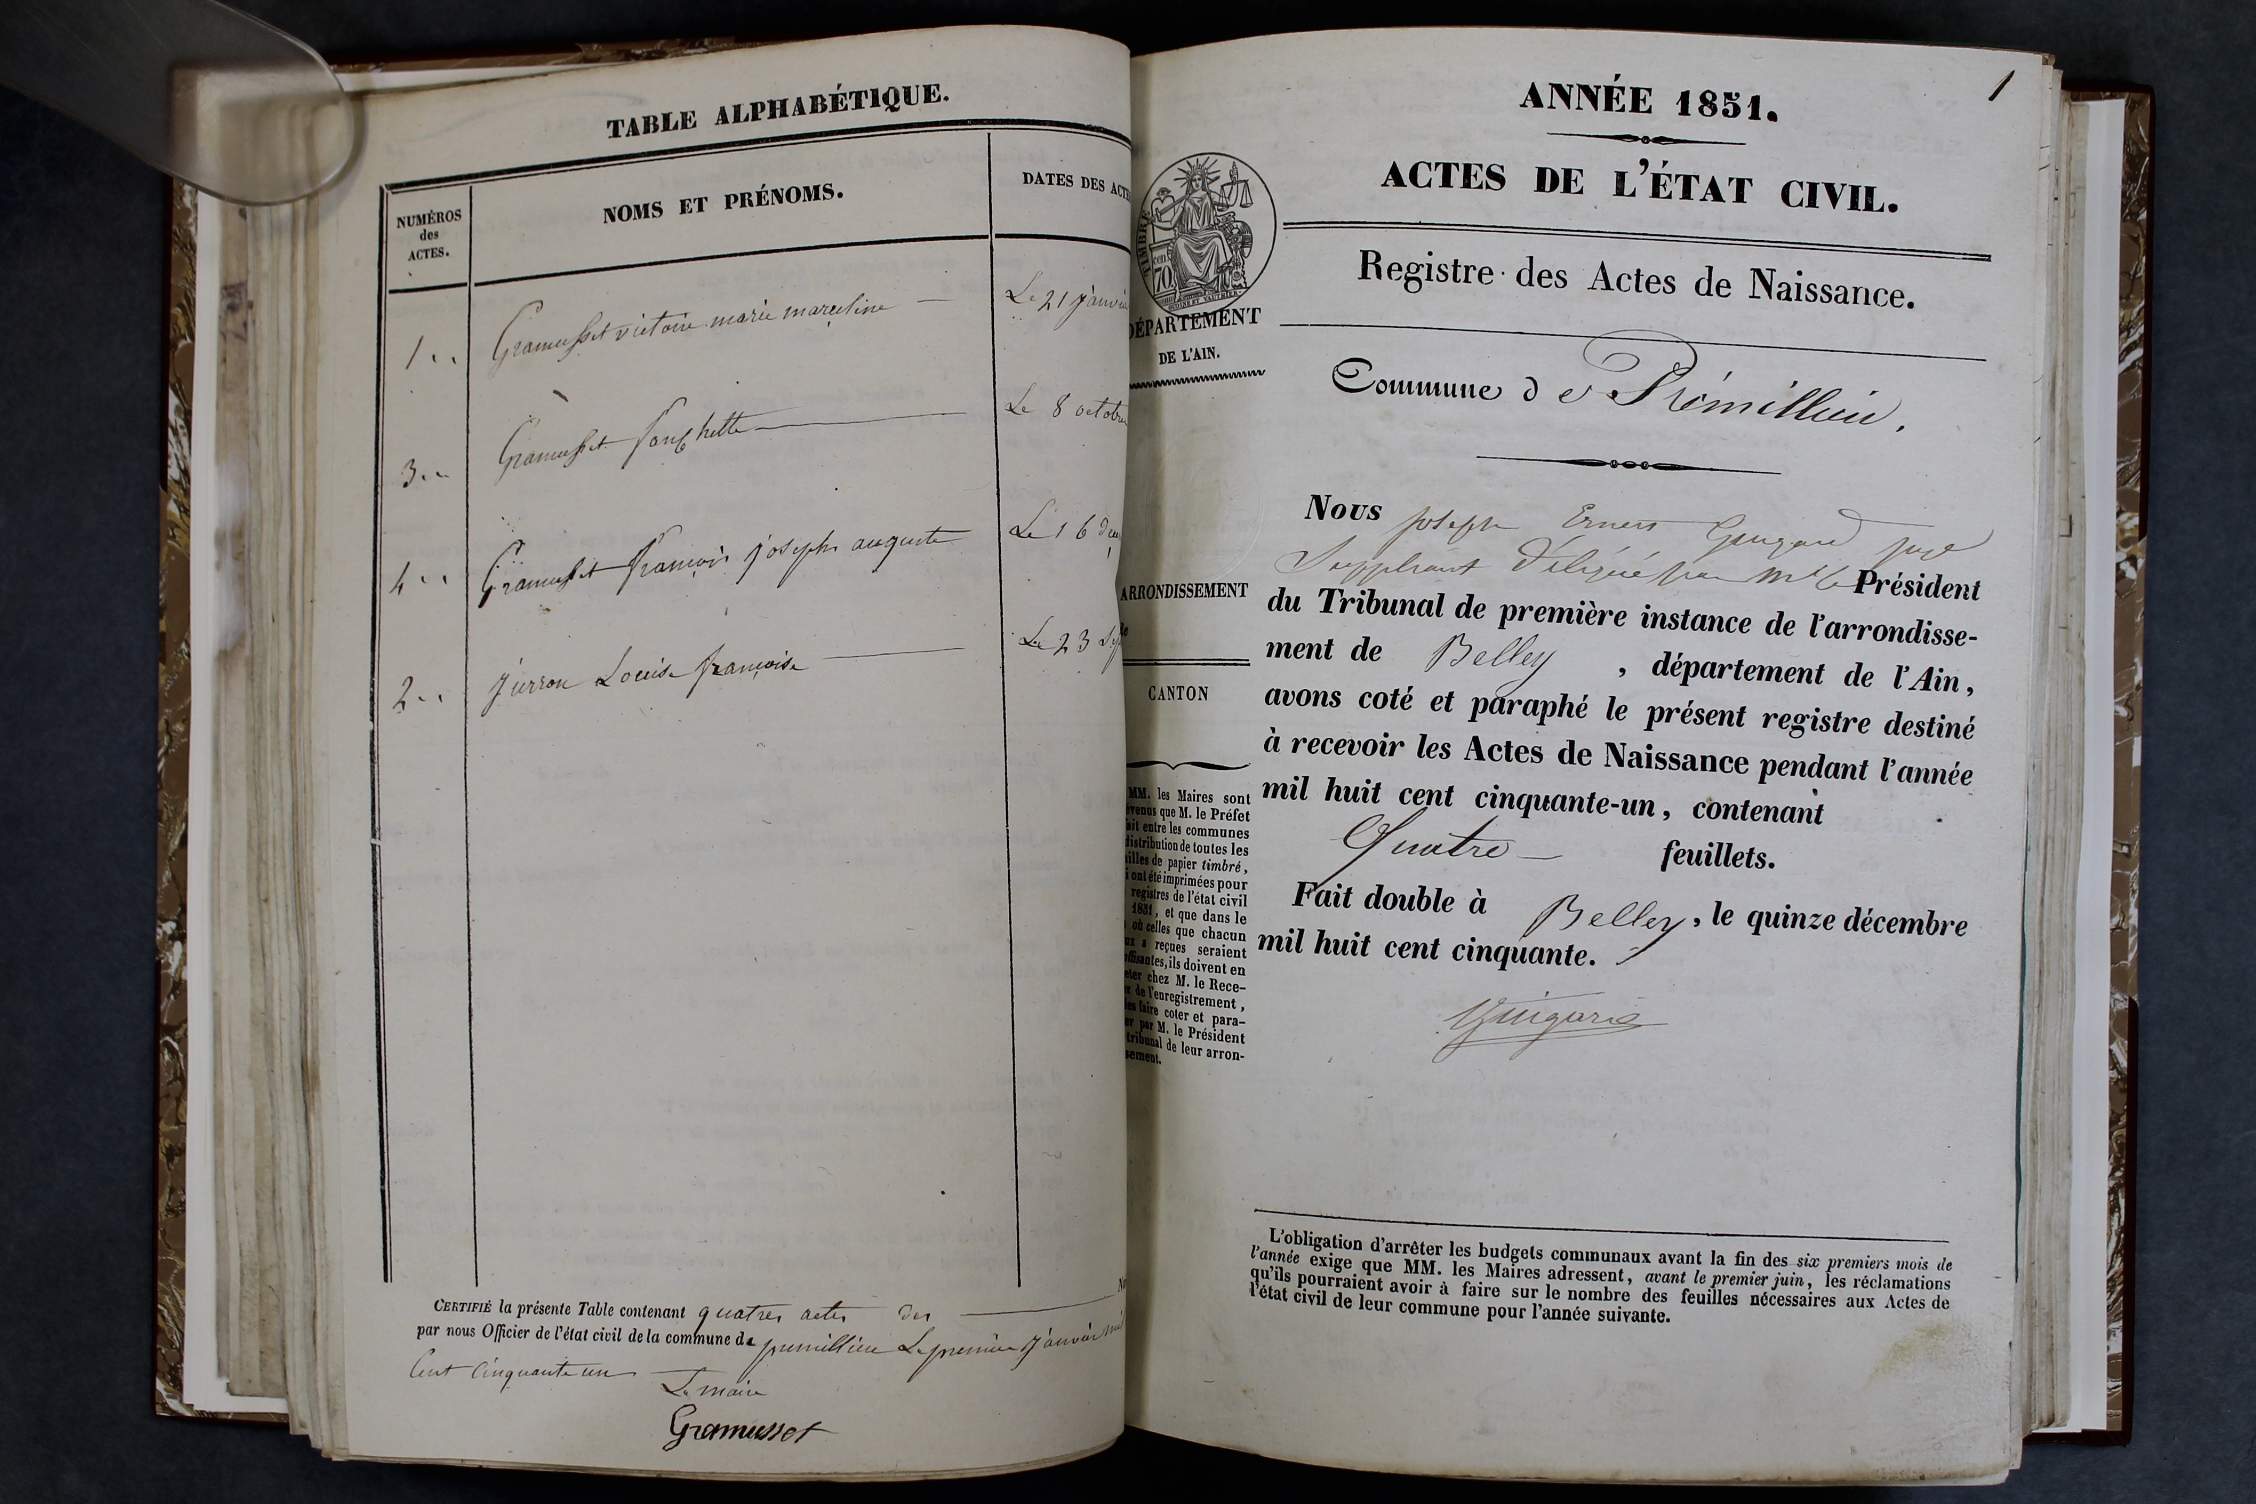 TABLE ALPHABÉTIQUE.
NUMÉROS
des
ACTES.
NOMS ET PRÉNOMS.
DATES DES ACTE
1 Gramusset victoire marie marceline Le 21 janvie
3 Gramusset Le 8 octobre
4 Gramusset françois joseph auguste Le 16
2 Jurron Louise françoise Le 23
CERTIFIÉ la présente Table contenant quatres actes des
par nous Officier de l'état civil de la commune de premillieu Le premier janvier mil
Cent Cinquante un
Le maire
Gramusset
1
ANNÉE 1851.
ACTES DE L'ÉTAT CIVIL.
TIMBRE
70.
DÉPARTEMENT
DE L'AIN.
ARRONDISSEMENT
CANTON
MM. les Maires sont
évenus que M. le Préfet
ait entre les communes
distribution de toutes les
illes de papier timbré,
i ont été imprimées pour
registres de l'état civil
1851, et que dans le
où celles que chacun
ux a reçues seraient
ffisantes, ils doivent en
eter chez M. le Rece-
r de l'enregistrement,
les faire coter et para-
er par M. le Président
tribunal de leur arron-
sement.
Registre des Actes de Naissance.
Commune de Prémillieu.
Nous Joseph Ernest juge
Suppléant Délégué par Mr le Président
du Tribunal de première instance de l'arrondisse-
ment de Belley, département de l'Ain,
avons coté et paraphé le présent registre destiné
à recevoir les Actes de Naissance pendant l'année
mil huit cent cinquante-un, contenant
Quatre feuillets.
Fait double à Belley, le quinze décembre
mil huit cent cinquante.
L'obligation d'arrêter les budgets communaux avant la fin des six premiers mois de
l'année exige que MM. les Maires adressent, avant le premier juin, les réclamations
qu'ils pourraient avoir à faire sur le nombre des feuilles nécessaires aux Actes de
l'état civil de leur commune pour l'année suivante.